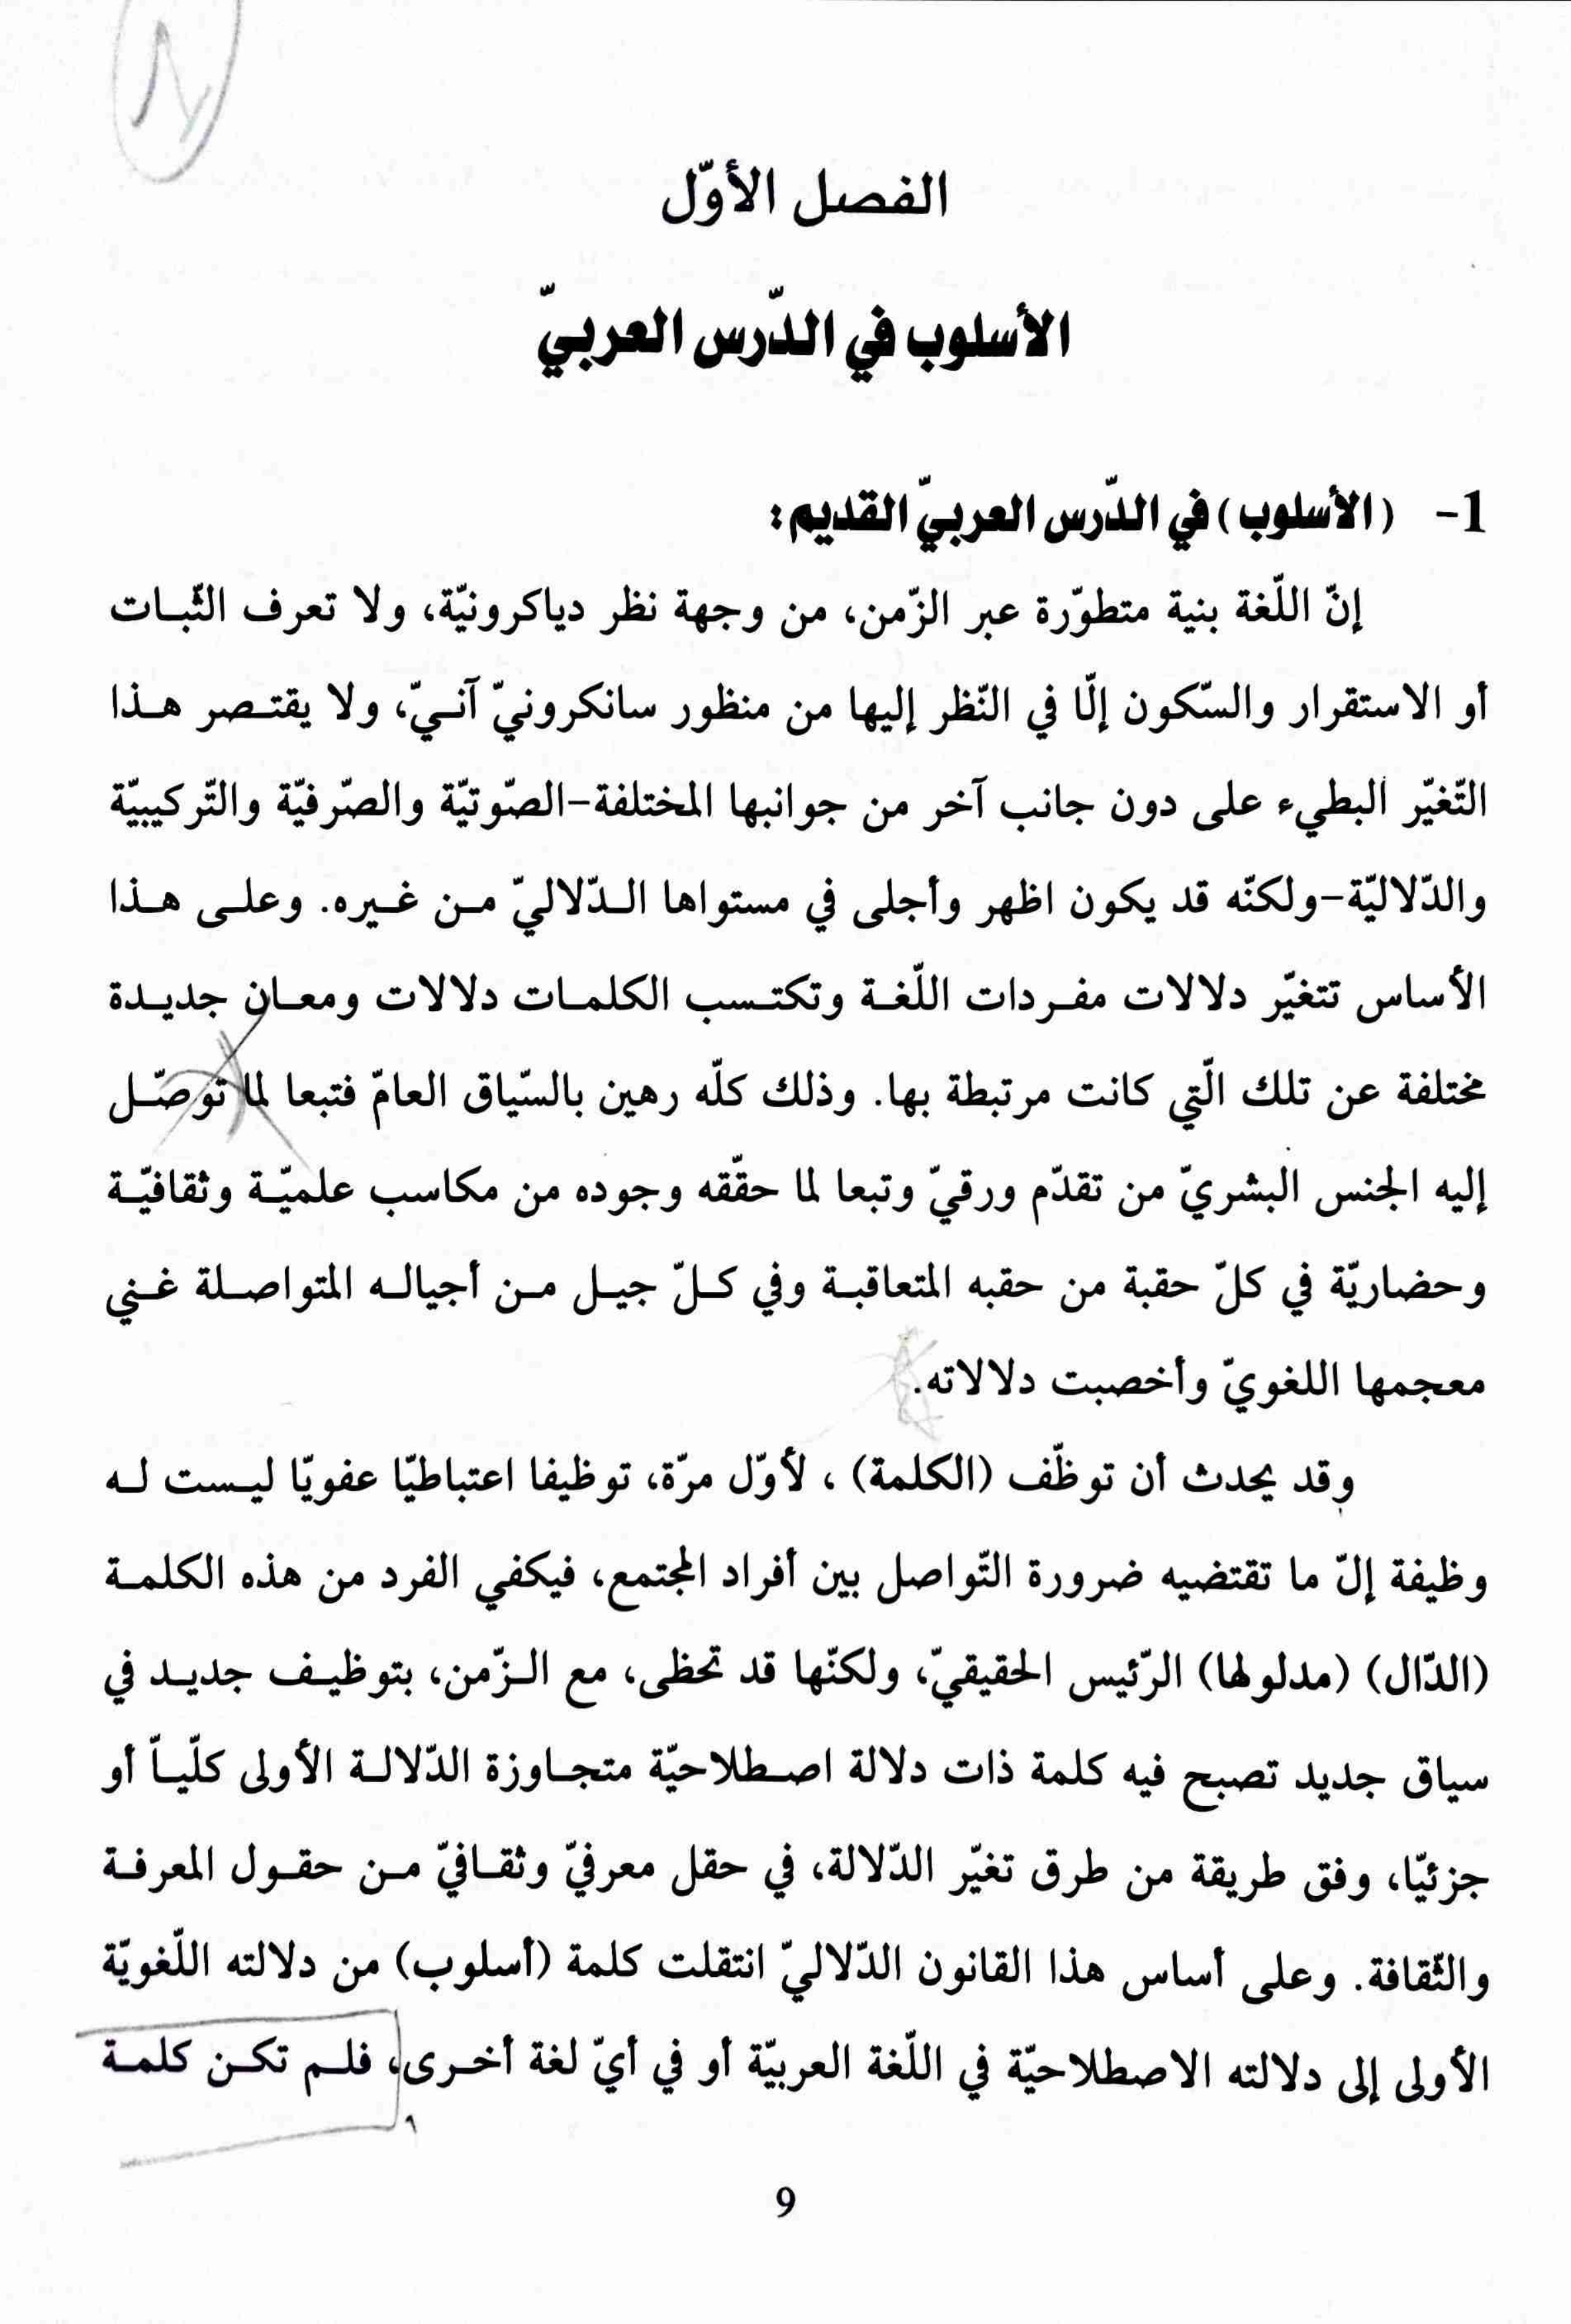 الفصل الأوّل
الأسلوب في الدّرس العربيّ
1- (الأسلوب) في الدّرس العربيّ القديم:
إنّ اللّغة بنية متطوّرة عبر الزّمن، من وجهة نظر دياكرونيّة، ولا تعرف الثّبات
أو الاستقرار والسّكون إلّا في النّظر إليها من منظور سانكرونيّ آنيّ، ولا يقتصر هذا
التّغيّر البطيء على دون جانب آخر من جوانبها المختلفة-الصّوتيّة والصّرفيّة والتّركيبيّة
والدّلاليّة-ولكنّه قد يكون اظهر وأجلى في مستواها الدّلاليّ من غيره. وعلى هذا
الأساس تتغيّر دلالات مفردات اللّغة وتكتسب الكلمات دلالات ومعان جديدة
مختلفة عن تلك الّتي كانت مرتبطة بها. وذلك كلّه رهين بالسّياق العامّ فتبعا لما توصّل
إليه الجنس البشريّ من تقدّم ورقيّ وتبعا لما حقّقه وجوده من مكاسب علميّة وثقافيّة
وحضاريّة في كلّ حقبة من حقبه المتعاقبة وفي كلّ جيل من أجياله المتواصلة غني
معجمها اللغويّ وأخصبت دلالاته.
وقد يحدث أن توظّف (الكلمة) ، لأوّل مرّة، توظيفا اعتباطيّا عفويّا ليست له
وظيفة إلّ ما تقتضيه ضرورة التّواصل بين أفراد المجتمع، فيكفي الفرد من هذه الكلمة
(الدّال) (مدلولها) الرّئيس الحقيقيّ، ولكنّها قد تحظى، مع الزّمن، بتوظيف جديد في
سياق جديد تصبح فيه كلمة ذات دلالة اصطلاحيّة متجاوزة الدّلالة الأولى كلّياّ أو
جزئيّا، وفق طريقة من طرق تغيّر الدّلالة، في حقل معرفيّ وثقافيّ من حقول المعرفة
والثّقافة. وعلى أساس هذا القانون الدّلاليّ انتقلت كلمة (أسلوب) من دلالته اللّغويّة
الأولى إلى دلالته الاصطلاحيّة في اللّغة العربيّة أو في أيّ لغة أخرى، فلم تكن كلمة
9